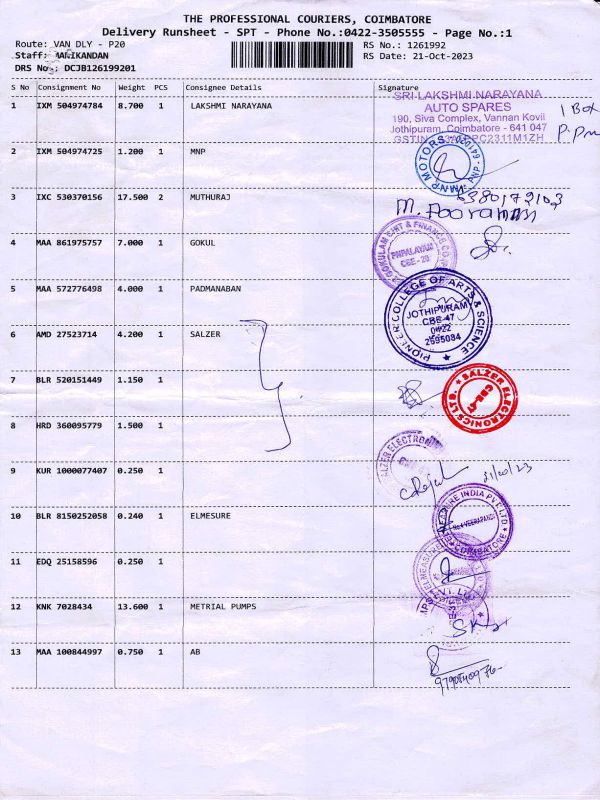 THE PROFESSIONAL COURIERS, COIMBATORE
Delivery Runsheet - SPT - Phone No.:0422-3505555 - Page No.:1
Route: VAN DLY - P20
RS No.: 1261992
Staff: MANIKANDAN
RS Date: 21-Oct-2023
DRS No.: DCJB126199201
S No Consignment No Weight PCS Consignee Details Signature
1 IXM 504974784 8.700 1 LAKSHMI NARAYANA
SRI LAKSHMI NARAYANA
AUTO SPARES
190, Siva Complex, Vannan Kovil
Jothipuram, Coimbatore - 641 047
1 Box
2 IXM 504974725 1.200 1 MNP
MNP MOTORS
3 IXC 530370156 17.500 2 MUTHURAJ
4 MAA 861975757 7.000 1 GOKUL
GOKULAM CHIT & FINANCE CO.
PNPALAYAM
CBE - 20
5 MAA 572776498 4.000 1 PADMANABAN
PIONEER COLLEGE OF ARTS & SCIENCE
JOTHIPURAM
CBE-47
0422
2695084
6 AMD 27523714 4.200 1 SALZER
7 BLR 520151449 1.150 1
SALZER ELECTRONICS LTD.
CBE-47
8 HRD 360095779 1.500 1
9 KUR 1000077407 0.250 1
SALZER ELECTRONI
21/10/23
10 BLR 8150252058 0.240 1 ELMESURE
INDIA PVT. LTD
COIMBATORE
11 EDQ 25158596 0.250 1
12 KNK 7028434 13.600 1 METRIAL PUMPS
13 MAA 100844997 0.750 1 AB